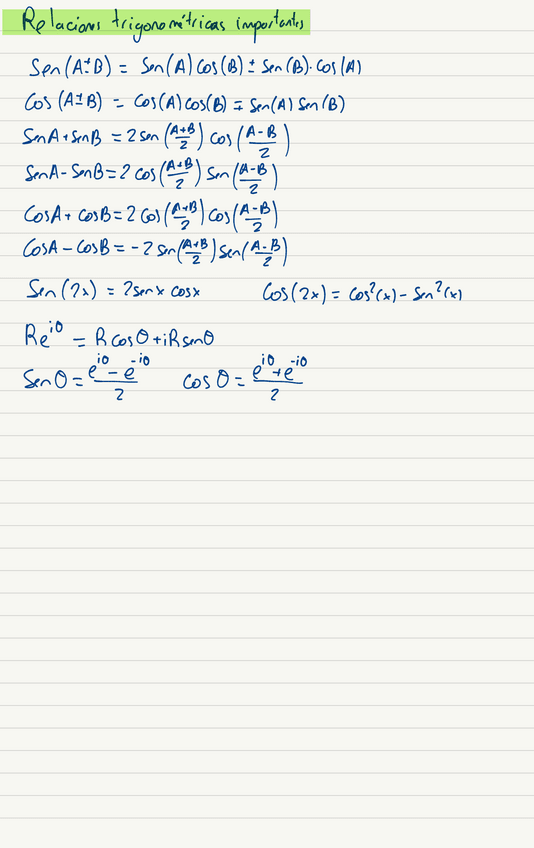 Relacions trigonométricas importantes
Sen(A±B) = Sen(A)Cos(B) ± Sen(B)·Cos(A)
Cos(A±B) = Cos(A)cos(B) ∓ Sen(A)Sen(B)
SenA+SenB = 2sen((A+B)/2) Cos((A-B)/2)
SenA-SenB = 2cos((A+B)/2) Sen((A-B)/2)
CosA+cosB = 2Cos((A+B)/2) Cos((A-B)/2)
CosA-CosB = -2Sen((A+B)/2) Sen((A-B)/2)
Sen(2x) = 2senx cosx Cos(2x) = Cos²(x) - Sen²(x)
Re^{iθ} = Rcosθ + iRsenθ
Senθ = (e^{iθ} - e^{-iθ})/2 cosθ = (e^{iθ} + e^{-iθ})/2